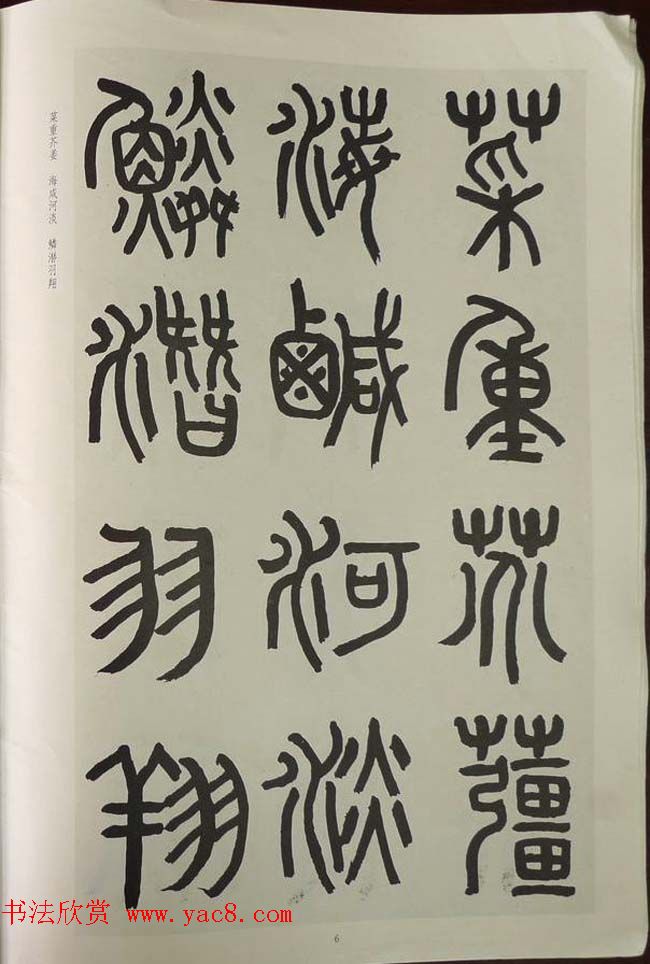 菜重芥薑
海鹹河淡
鱗潛羽翔
菜重芥姜 海咸河淡 鳞潜羽翔
书法欣赏 www.yac8.com
6